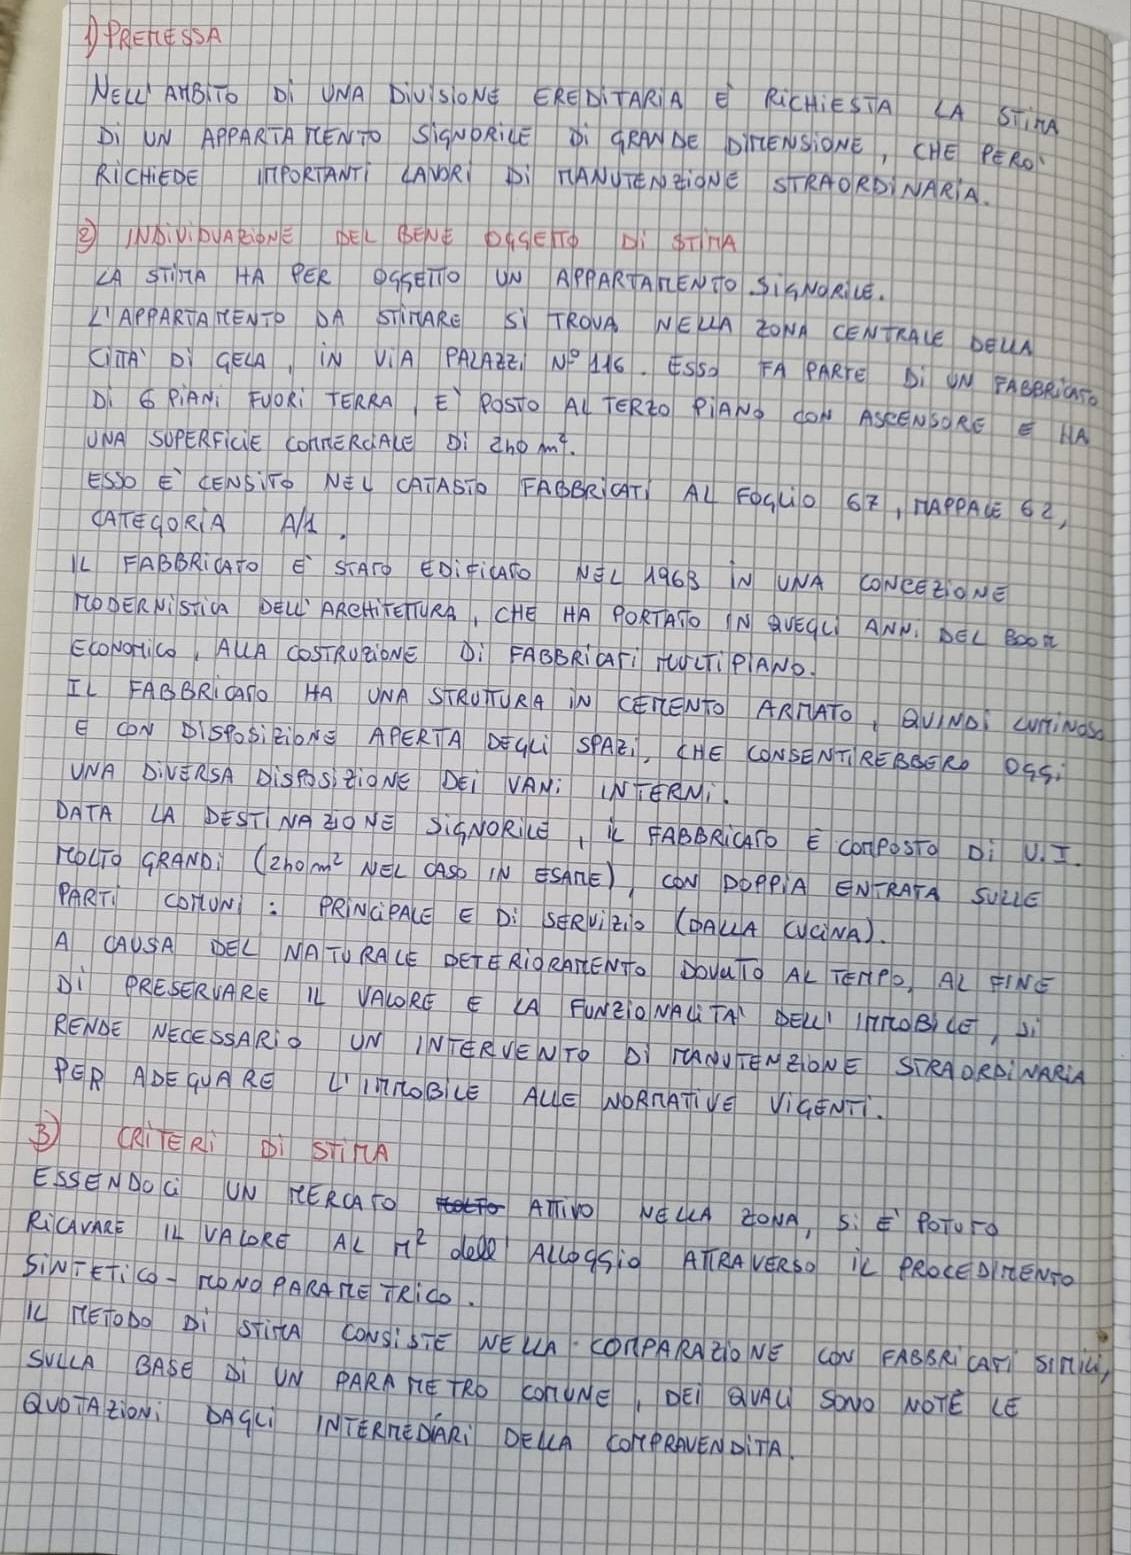 1) PREMESSA
NELL' AMBITO DI UNA DIVISIONE EREDITARIA È RICHIESTA LA STIMA
DI UN APPARTAMENTO SIGNORILE DI GRANDE DIMENSIONE, CHE PERO'
RICHIEDE IMPORTANTI LAVORI DI MANUTENZIONE STRAORDINARIA.
2) INDIVIDUAZIONE DEL BENE OGGETTO DI STIMA
LA STIMA HA PER OGGETTO UN APPARTAMENTO SIGNORILE.
L'APPARTAMENTO DA STIMARE SI TROVA NELLA ZONA CENTRALE DELLA
CITTA' DI GELA, IN VIA PALAZZI Nº 116. ESSO FA PARTE DI UN FABBRICATO
DI 6 PIANI FUORI TERRA, E' POSTO AL TERZO PIANO CON ASCENSORE E HA
UNA SUPERFICIE COMMERCIALE DI 240 m².
ESSO E' CENSITO NEL CATASTO FABBRICATI AL FOGLIO 67, MAPPALE 62,
CATEGORIA A/1.
IL FABBRICATO E' STATO EDIFICATO NEL 1963 IN UNA CONCEZIONE
MODERNISTICA DELL' ARCHITETTURA, CHE HA PORTATO IN QUEGLI ANNI DEL BOOM
ECONOMICO, ALLA COSTRUZIONE DI FABBRICATI MULTIPIANO.
IL FABBRICATO HA UNA STRUTTURA IN CEMENTO ARMATO, QUINDI LUMINOSO
E CON DISPOSIZIONE APERTA DEGLI SPAZI, CHE CONSENTIREBBERO OGGI
UNA DIVERSA DISPOSIZIONE DEI VANI INTERNI.
DATA LA DESTINAZIONE SIGNORILE, IL FABBRICATO E COMPOSTO DI U.I.
MOLTO GRANDI (240 m² NEL CASO IN ESAME), CON DOPPIA ENTRATA SULLE
PARTI COMUNI: PRINCIPALE E DI SERVIZIO (DALLA CUCINA).
A CAUSA DEL NATURALE DETERIORAMENTO DOVUTO AL TEMPO, AL FINE
DI PRESERVARE IL VALORE E LA FUNZIONALITA' DELL' IMMOBILE, SI
RENDE NECESSARIO UN INTERVENTO DI MANUTENZIONE STRAORDINARIA
PER ADEGUARE L'IMMOBILE ALLE NORMATIVE VIGENTI.
3) CRITERI DI STIMA
ESSENDOCI UN MERCATO MOLTO ATTIVO NELLA ZONA, SI E' POTUTO
RICAVARE IL VALORE AL M² dell' ALLOGGIO ATTRAVERSO IL PROCEDIMENTO
SINTETICO-MONOPARAMETRICO.
IL METODO DI STIMA CONSISTE NELLA COMPARAZIONE CON FABBRICATI SIMILI,
SULLA BASE DI UN PARAMETRO COMUNE, DEI QUALI SONO NOTE LE
QUOTAZIONI DAGLI INTERMEDIARI DELLA COMPRAVENDITA.